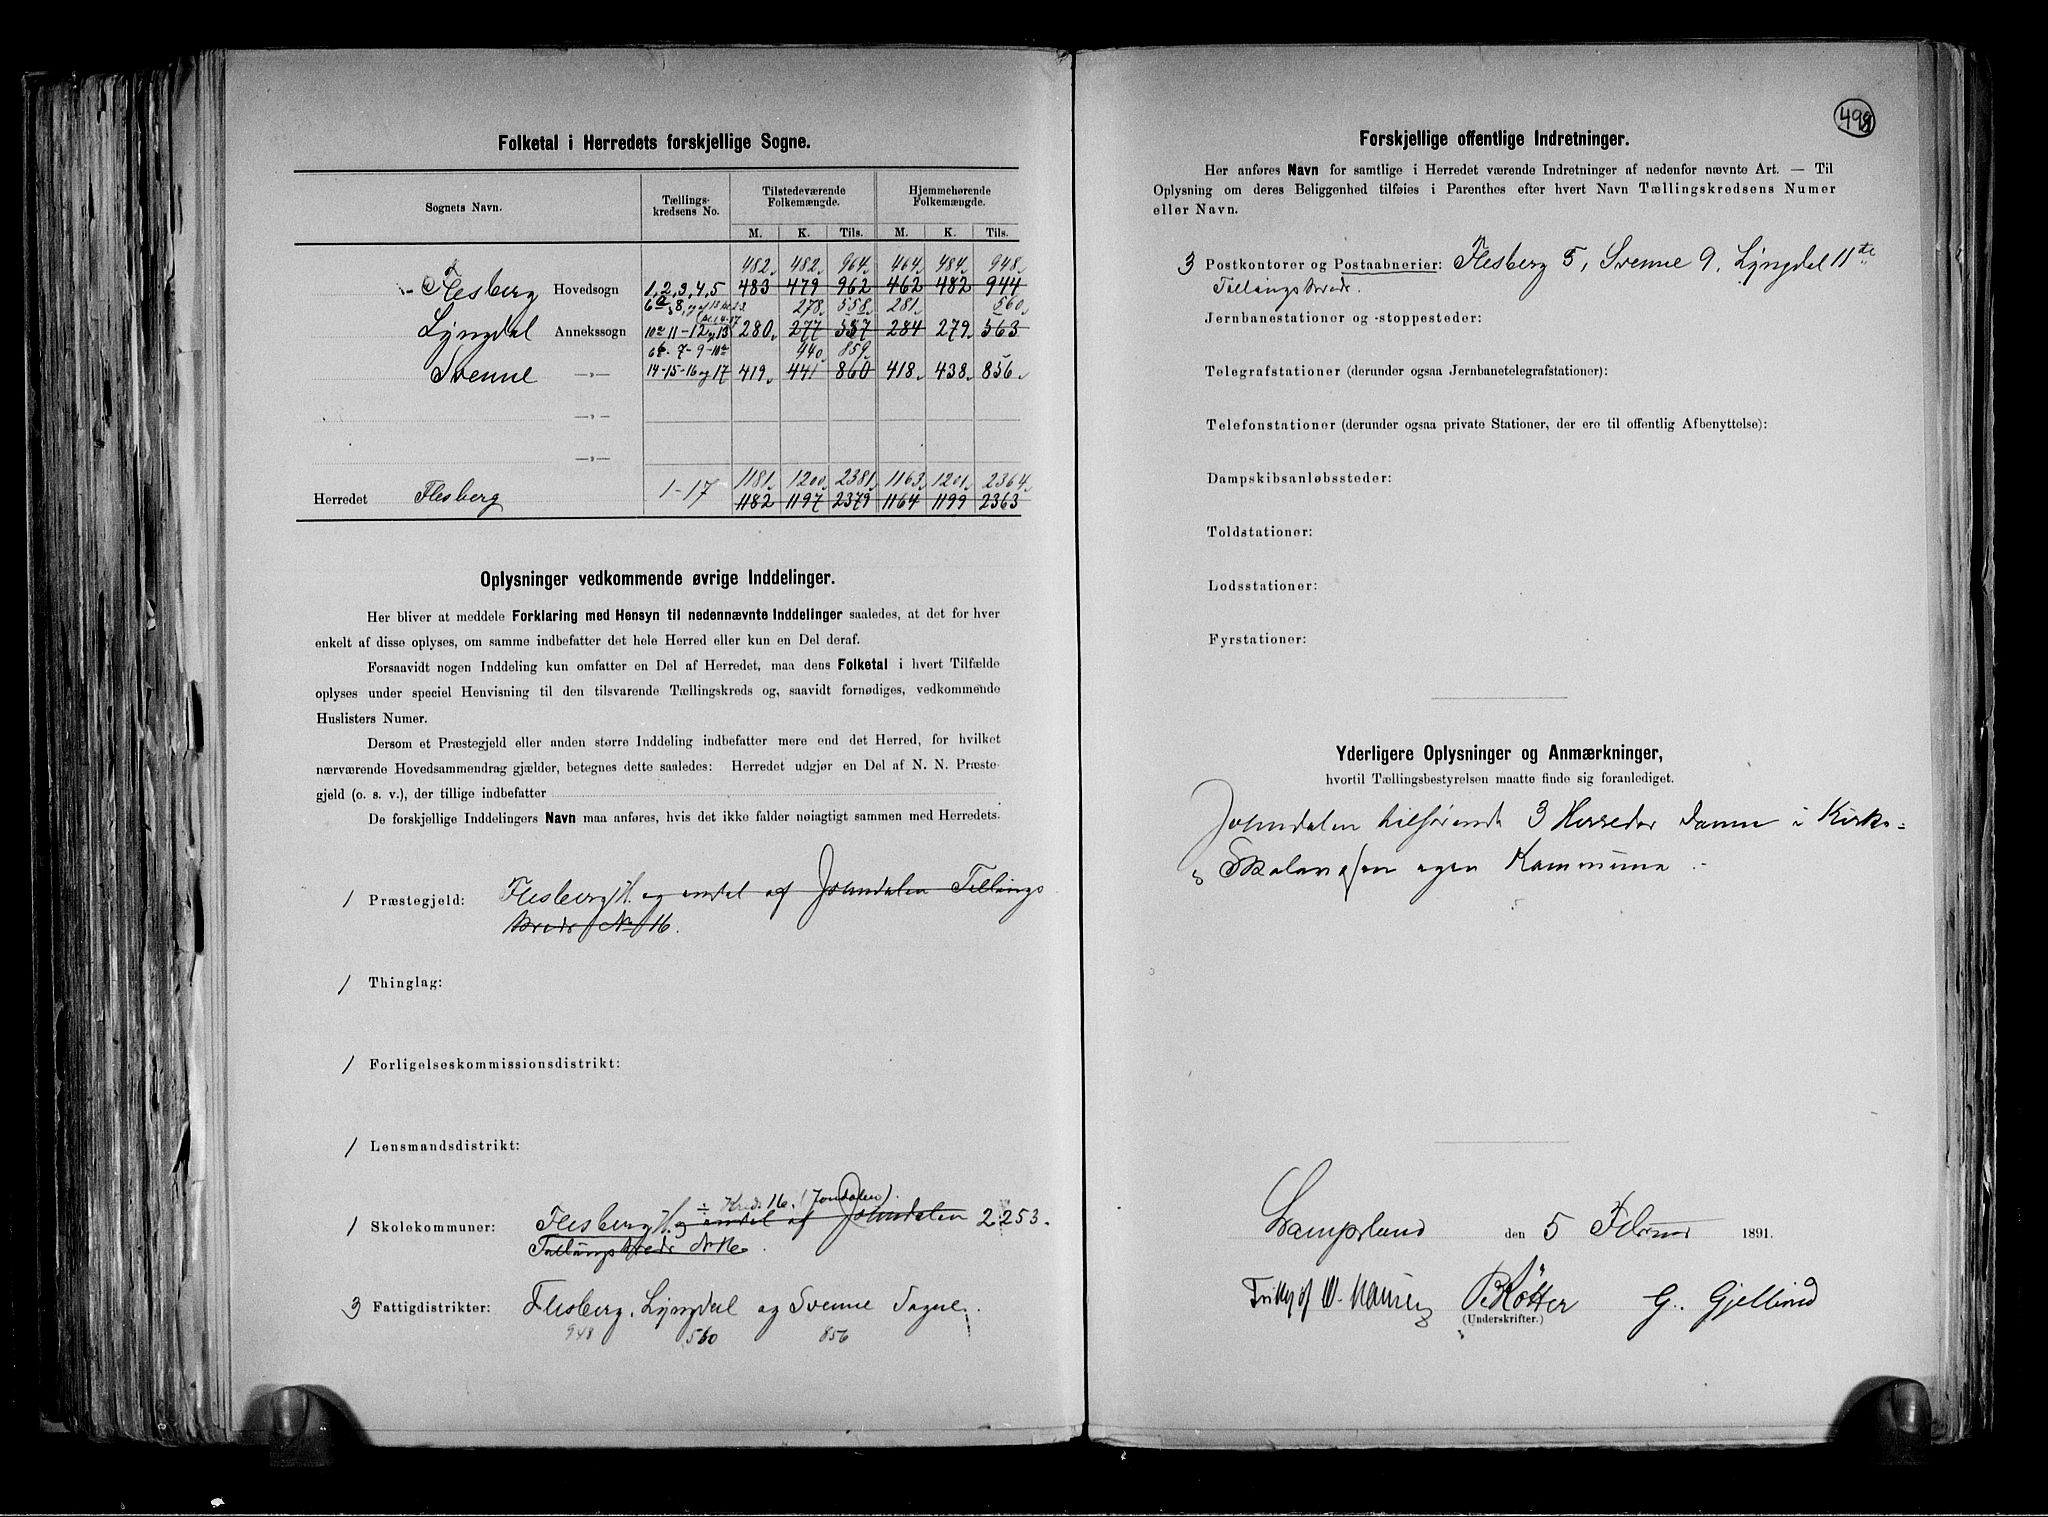 Folketal i Herredets forskjellige Sogne.
Sognets Navn. Tællings-kredsens No. Tilstedeværende Folkemængde. Hjemmehørende Folkemængde.
M. K. Tils. M. K. Tils.
482 482 964 464 484 948
Flesberg Hovedsogn 1, 2, 3, 4, 5 483 479 962 462 482 944
278 558 281 560
Lyngdal Annekssogn 10a 11-12 og 13 280 277 557 284 279 563
6b- 7-9-10b 440 859
Svenne —„— 14-15-16 og 17 419 441 860 418 438 856
—„—
—„—
1181 1200 2381 1163 1201 2364
Herredet Flesberg 1-17 1182 1197 2379 1164 1199 2363
Oplysninger vedkommende øvrige Inddelinger.
Her bliver at meddele Forklaring med Hensyn til nedennævnte Inddelinger saaledes, at det for hver
enkelt af disse oplyses, om samme indbefatter det hele Herred eller kun en Del deraf.
Forsaavidt nogen Inddeling kun omfatter en Del af Herredet, maa dens Folketal i hvert Tilfælde
oplyses under speciel Henvisning til den tilsvarende Tællingskreds og, saavidt fornødiges, vedkommende
Huslisters Numer.
Dersom et Præstegjeld eller anden større Inddeling indbefatter mere end det Herred, for hvilket
nærværende Hovedsammendrag gjælder, betegnes dette saaledes: Herredet udgjør en Del af N. N. Præste-
gjeld (o. s. v.), der tillige indbefatter
De forskjellige Inddelingers Navn maa anføres, hvis det ikke falder nøiagtigt sammen med Herredets.
1 Præstegjeld: Flesberg H. og endel af Johndalen Tellings
kreds No 16.
1 Thinglag:
1 Forligelseskommissionsdistrikt:
1 Lensmandsdistrikt:
÷ Kreds 16. (Jondalen).
1 Skolekommuner: Flesberg H. og endel af Johndalen 2253.
Tællingskreds No 16
3 Fattigdistrikter: Flesberg, Lyngdal og Svenne Sogne.
948 560 856
499
Forskjellige offentlige Indretninger.
Her anføres Navn for samtlige i Herredet værende Indretninger af nedenfor nævnte Art. — Til
Oplysning om deres Beliggenhed tilføies i Parenthes efter hvert Navn Tællingskredsens Numer
eller Navn.
3 Postkontorer og Postaabnerier: Flesberg 5, Svenne 9, Lyngdal 11te
Tællingskreds.
Jernbanestationer og -stoppesteder:
Telegrafstationer (derunder ogsaa Jernbanetelegrafstationer):
Telefonstationer (derunder ogsaa private Stationer, der ere til offentlig Afbenyttelse):
Dampskibsanløbssteder:
Toldstationer:
Lodsstationer:
Fyrstationer:
Yderligere Oplysninger og Anmærkninger,
hvortil Tællingsbestyrelsen maatte finde sig foranlediget.
Johndalen tilhørende 3 Herreder danne i Kirke-
Skolevæsen egen Kommune.
Lampeland den 5 Februar 1891.
W. Hansen B Kötter G. Gjellind
(Underskrifter.)